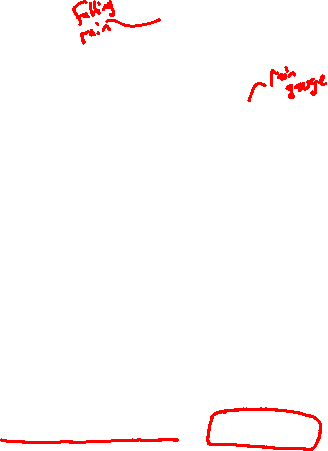 Falling
rain
rain
gauge